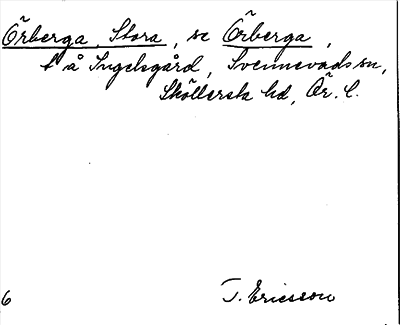 Örberga, Stora, se Örberga,
t å Ingelsgård, Svennevads sn,
Sköllersta hd, Ör. l.
6
T. Ericsson